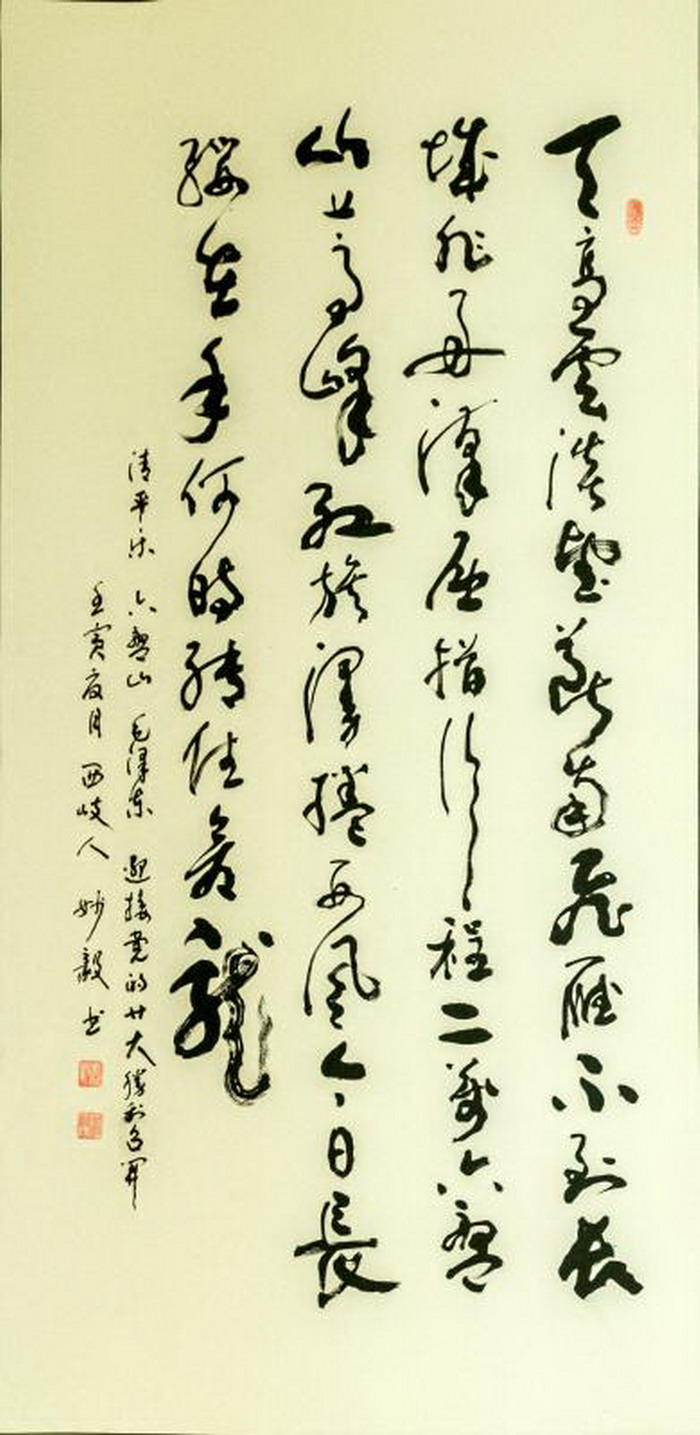 天高雲淡望斷南飛雁不到长
城非好漢屈指行程二萬六盤
山上高峰紅旗漫捲西風今日長
纓在手何時縛住蒼龍
清平乐 六盤山 毛澤东 迎接党的廿大勝利召開
壬寅夏月 西岐人 妙毅 书